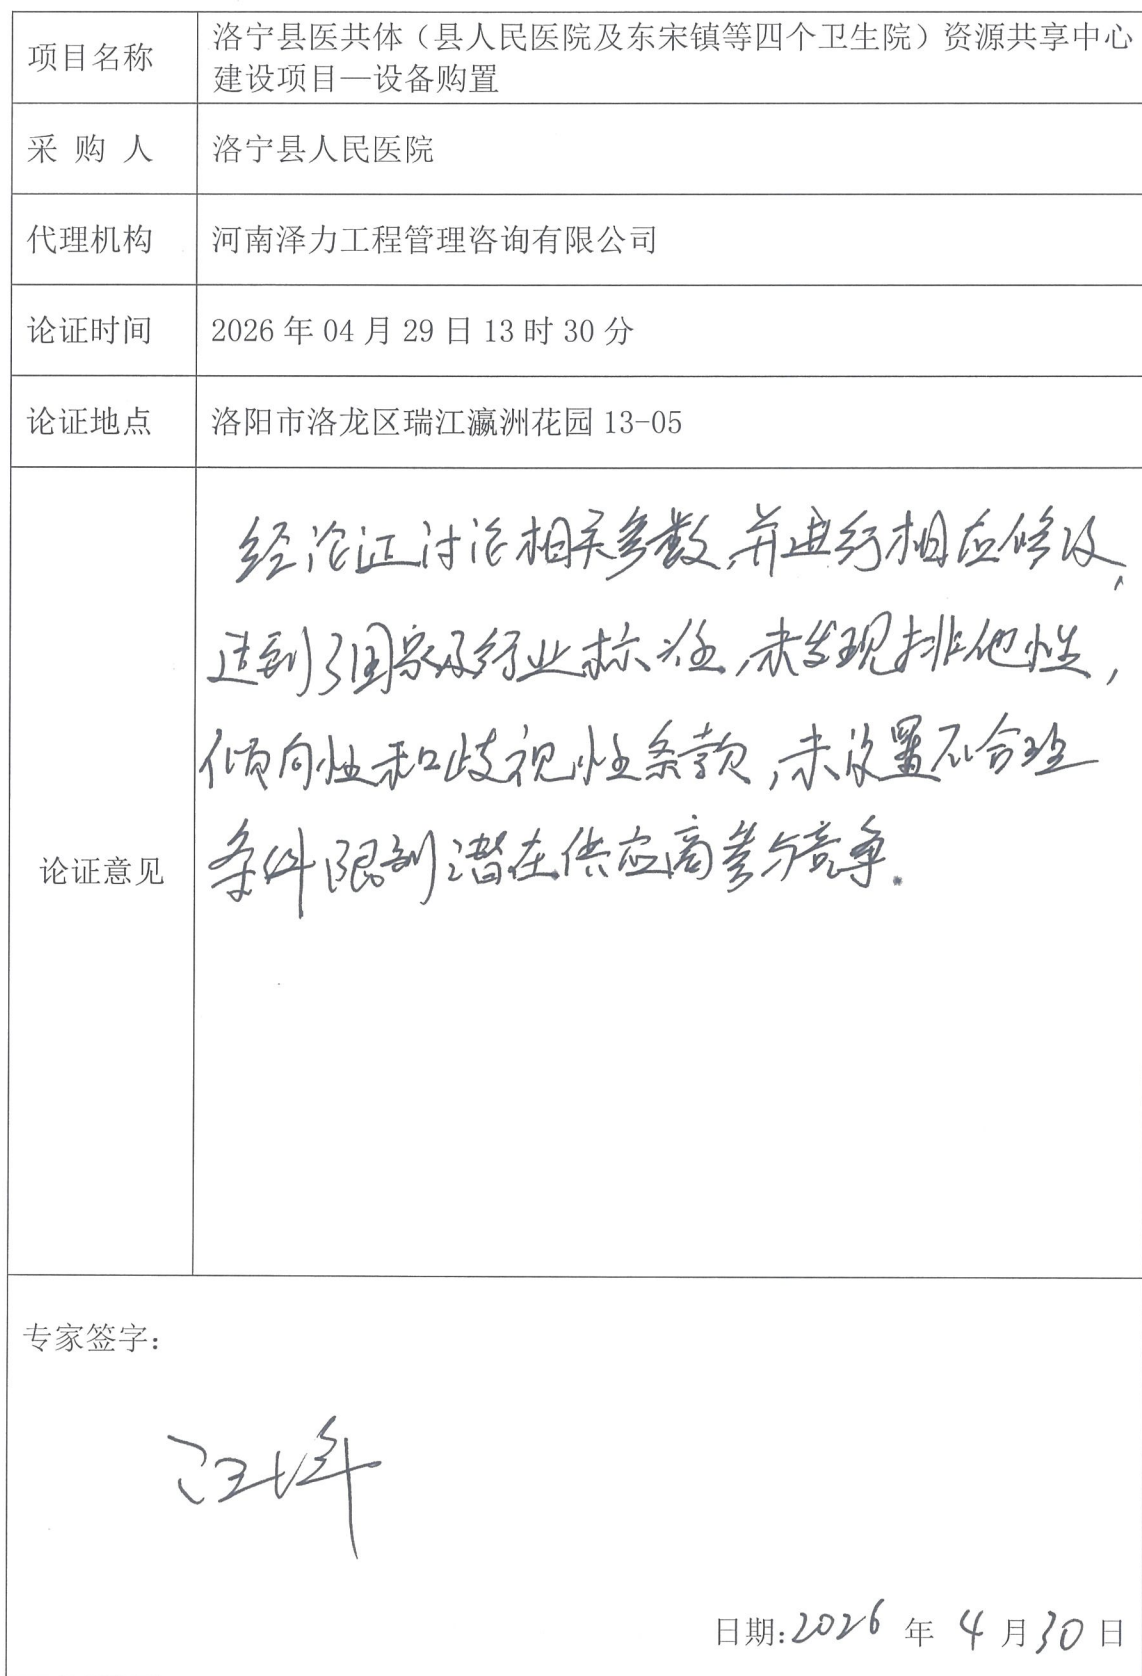 项目名称
洛宁县医共体（县人民医院及东宋镇等四个卫生院）资源共享中心
建设项目—设备购置
采 购 人
洛宁县人民医院
代理机构
河南泽力工程管理咨询有限公司
论证时间
2026 年 04 月 29 日 13 时 30 分
论证地点
洛阳市洛龙区瑞江瀛洲花园 13-05
论证意见
经论证讨论相关参数,并进行相应修改,
达到了国家及行业标准,未发现排他性,
倾向性和歧视性条款,未设置不合理
条件限制潜在供应商参与竞争.
专家签字：
汪
日期:2026 年 4 月 30 日